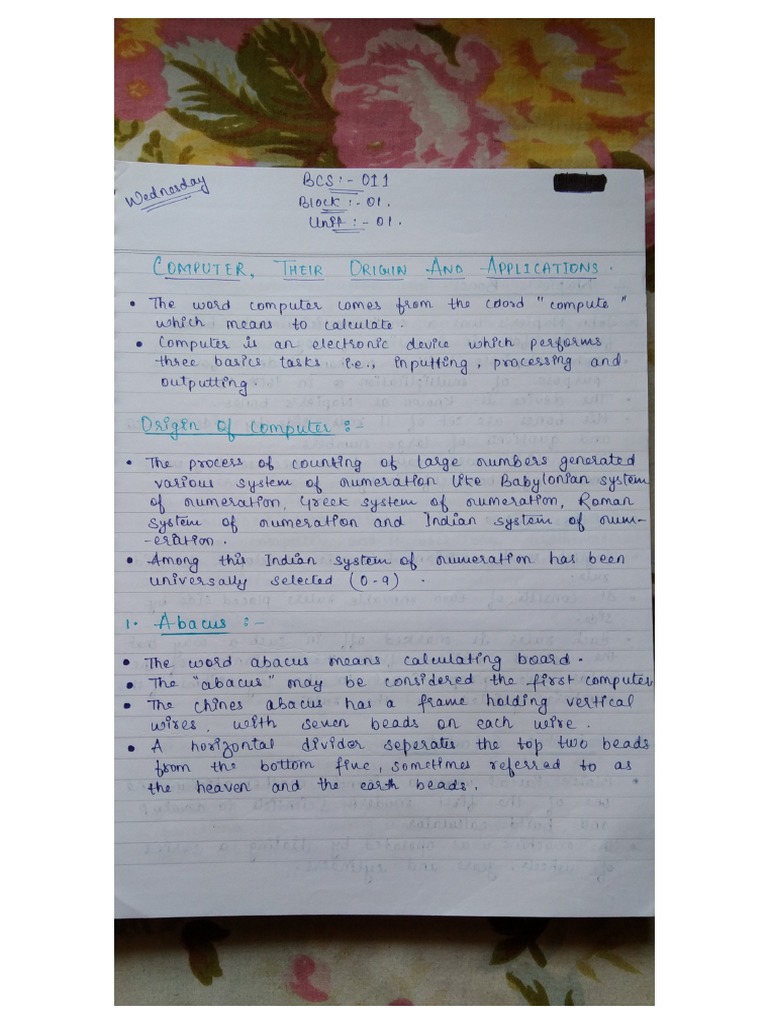 Wednesday
BCS:- 011
Block :- 01.
Unit :- 01.
COMPUTER, THEIR ORIGIN AND APPLICATIONS.
• The word computer comes from the word "compute"
which means to calculate.
• Computer is an electronic device which performs
three basics tasks i.e., inputting, processing and
outputting.
Origin of computer :-
• The process of counting of large numbers generated
various system of numeration like Babylonian system
of numeration, Greek system of numeration, Roman
system of numeration and Indian system of num-
-eration.
• Among this Indian system of numeration has been
universally selected (0-9).
1. Abacus :-
• The word abacus means calculating board.
• The "abacus" may be considered the first computer
• The chines abacus has a frame holding vertical
wires, with seven beads on each wire.
• A horizontal divider seperates the top two beads
from the bottom five, sometimes referred to as
the heaven and the earth beads.